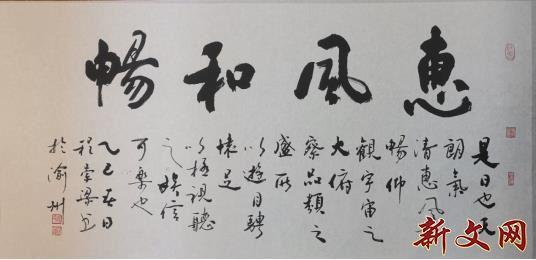 惠風和暢
是日也天
朗氣
清惠風
暢仰
觀宇宙之
大俯
察品類之
盛所
以遊目騁
懷足
以極視聽
之娛信
可樂也
乙巳春日
程梁书
於渝州
新文网